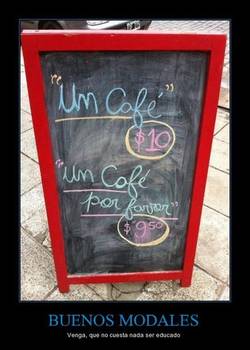 "Un Café"
$10
"Un Café
por favor"
$9.50
BUENOS MODALES
Venga, que no cuesta nada ser educado